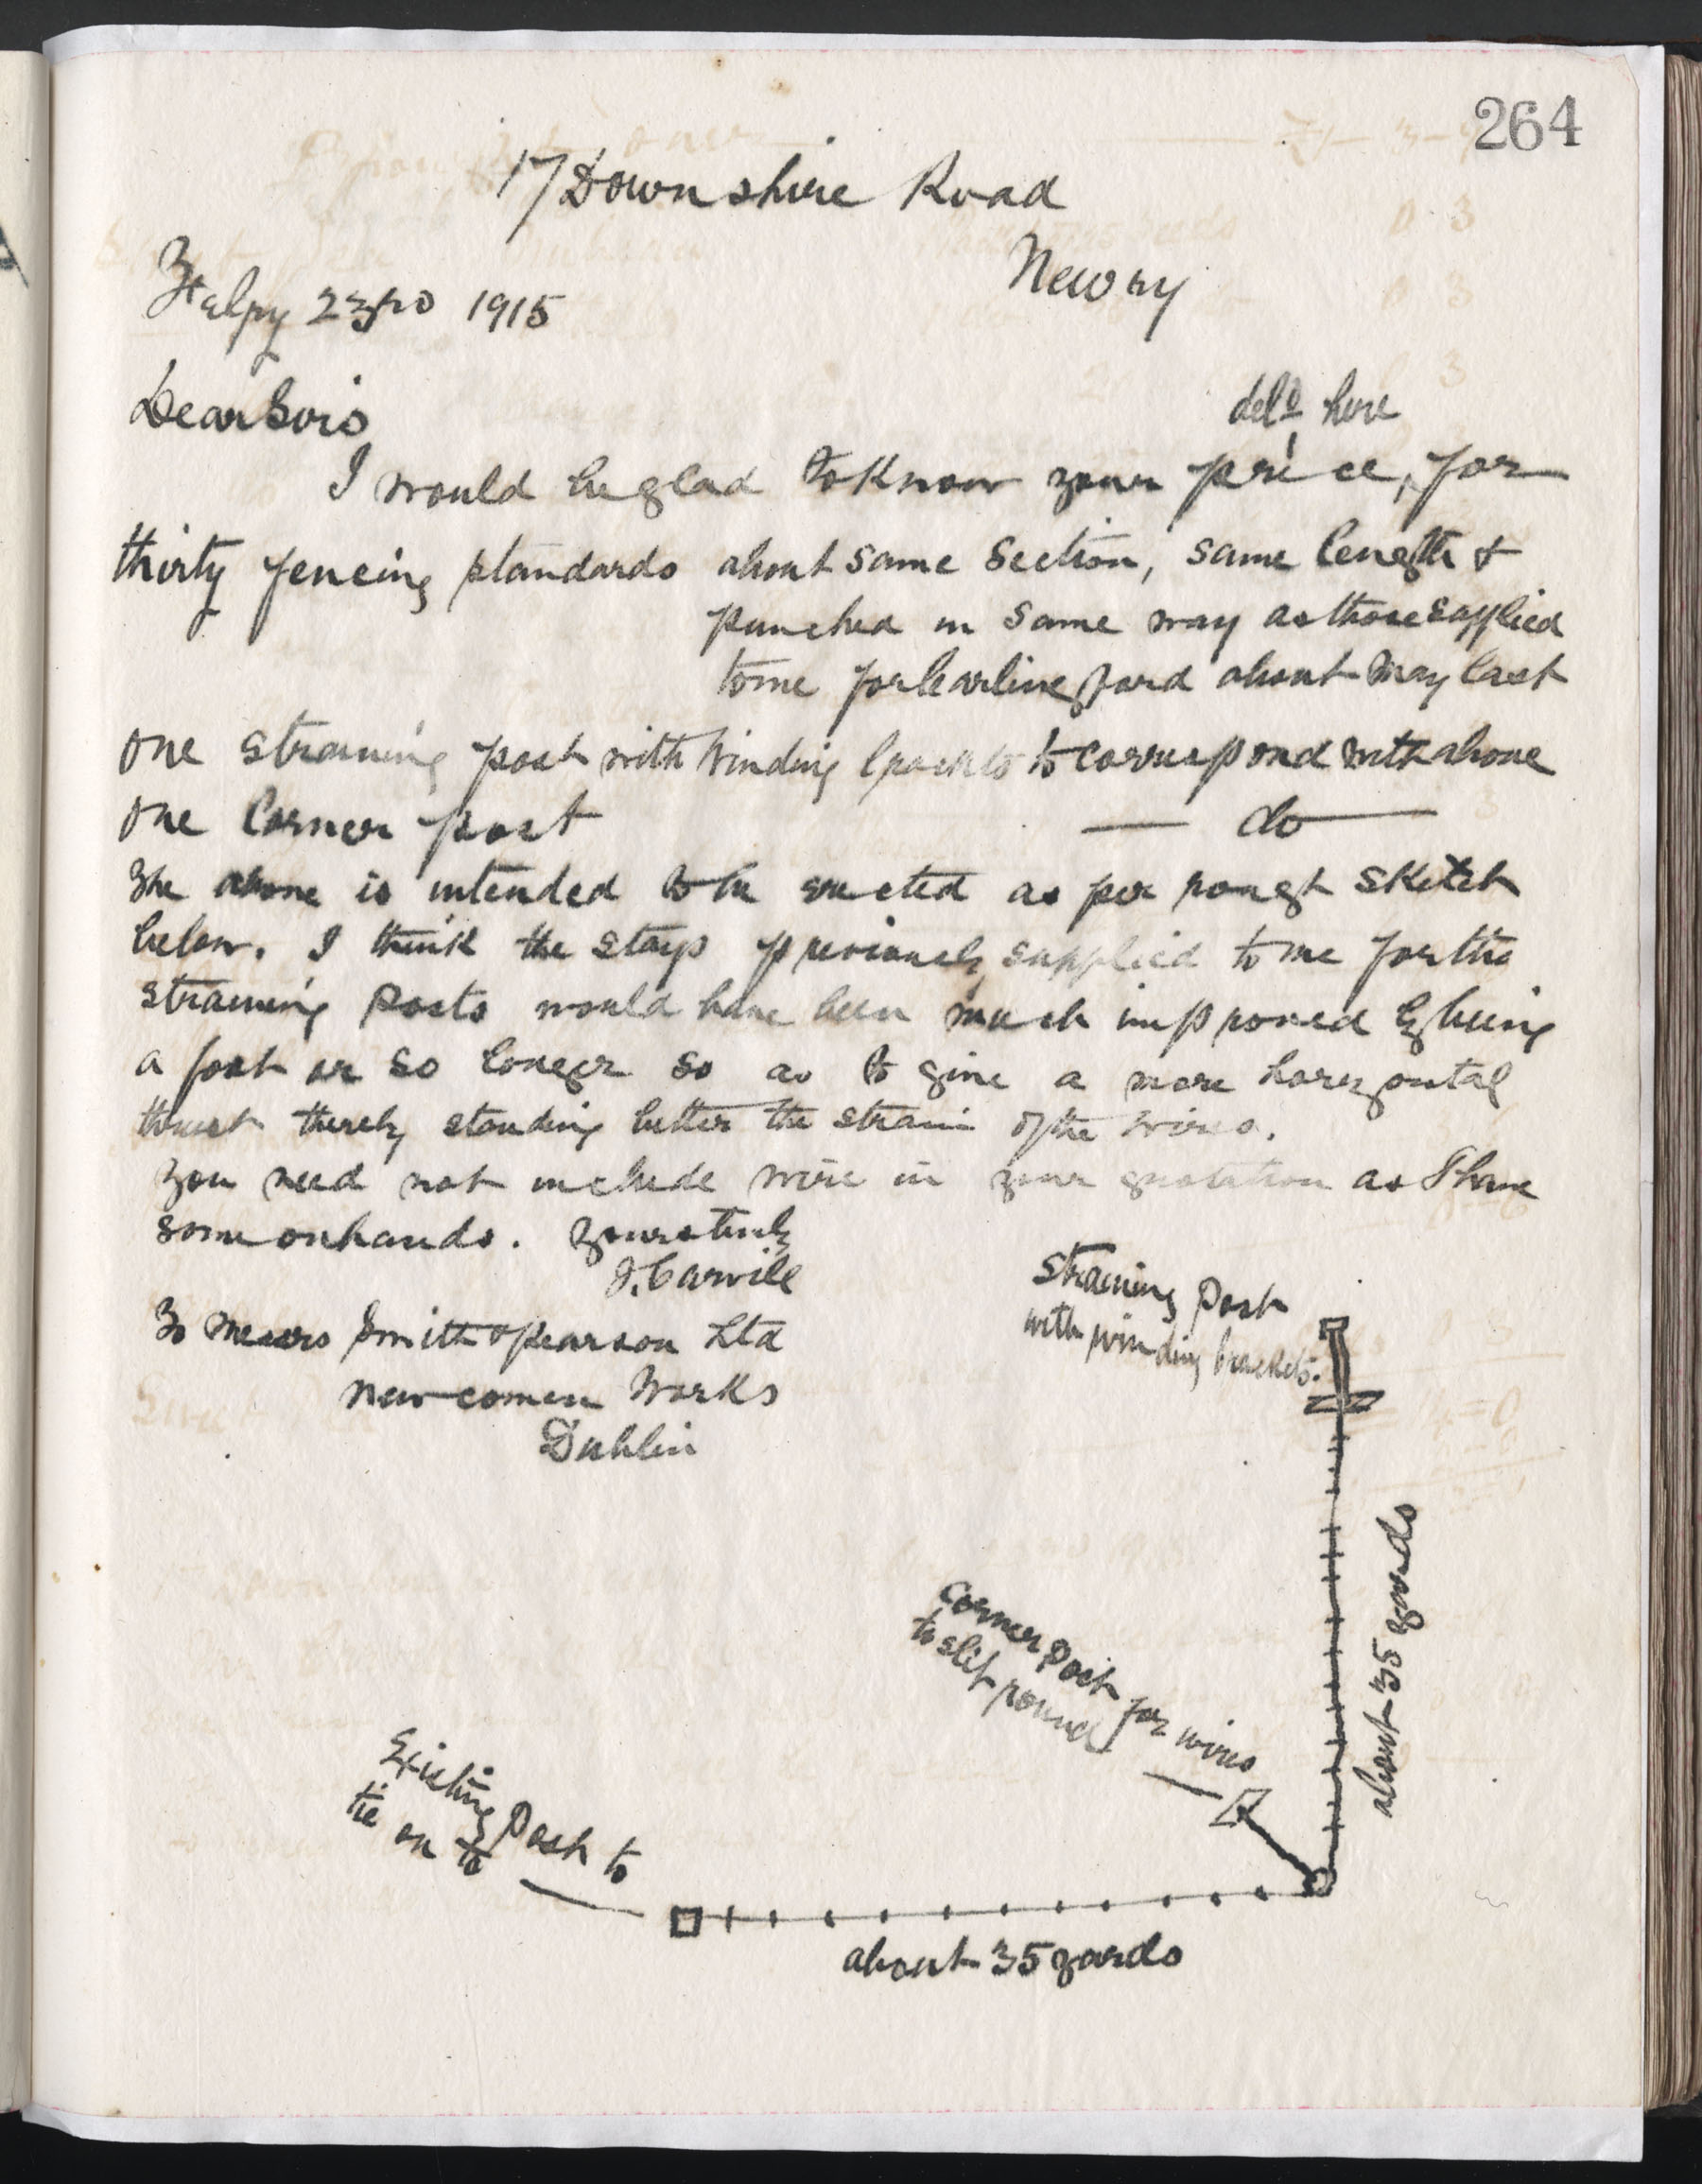 264
17 Downshire Road
Newry
23rd 1915
Dear Sirs
deld here
I would be glad to know your price, for
thirty fencing standards about same section, same length &
punched in same way as those supplied
to me for Carlingford about May last
one straining post with winding brackets to correspond with above
one Corner post — do —
The above is intended to be erected as per rough sketch
below. I think the stays previously supplied to me for the
straining posts would have been much improved by being
a foot or so longer so as to give a more horizontal
thrust thereby standing better the strain of the wires.
You need not include wire in your quotation as I have
some on hands. Yours truly
J. Carvill
To Messrs Smith & Pearson Ltd
Newcomen Works
Dublin
Straining Post
with winding brackets.
about 35 yards
Corner Post for wires
to slip round
Existing Post to
tie on to
about 35 yards